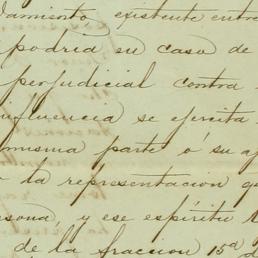 damiento existente entre
podria en caso de
perjudicial contra
influencia se ejercita
misma parte ó su a
la representacion q
sona, y ese espíritu
de la fraccion 15ª d